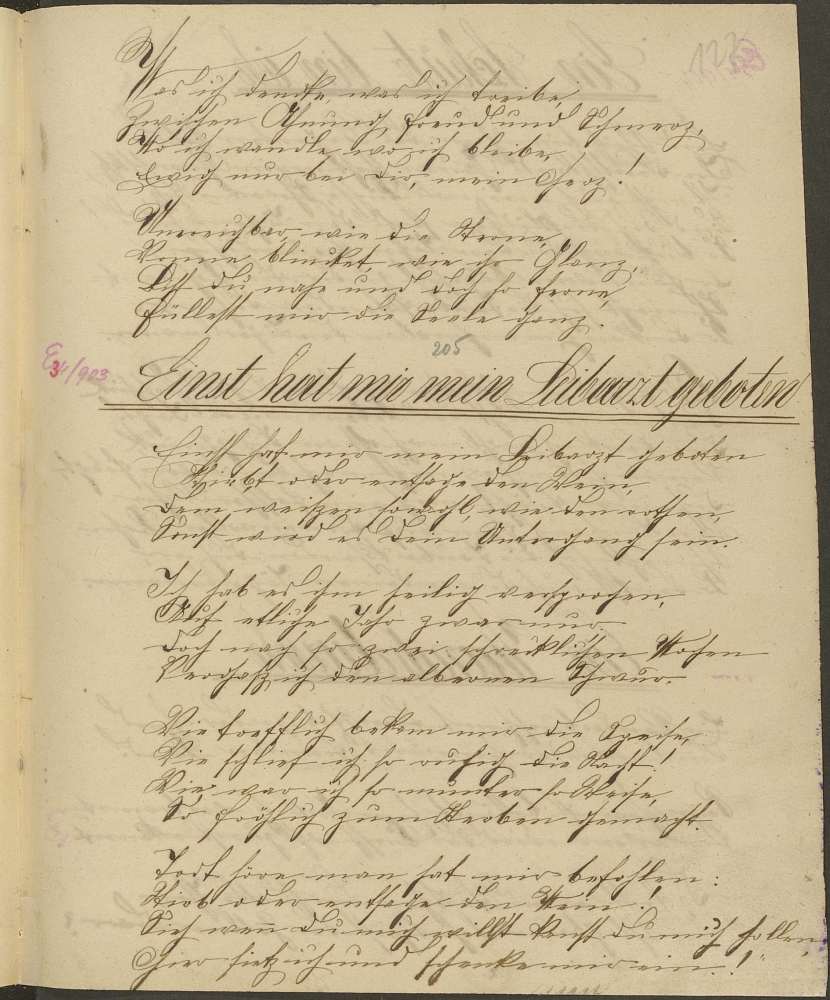 Was ich denke, was ich treibe,
Zwischen Ahnung Freud und Schmerz,
Wo ich wandle, wo ich bleibe,
Ewig nur bei dir, mein Herz!
Unereichbar, wie die Sterne,
Wonne blinket, wie ihr Glanz,
Bist du nahe und doch so ferne,
Füllest mir die Seele ganz.
205
E34/903
Einst hat mir mein Leibarzt geboten
Einst hat mir mein Leibarzt geboten
Stirbt oder entsage den Wein,
Dem weißen sowohl, wie den rothen,
Sonst wird es dein Untergang sein.
Ich hab es ihm heilig versprochen,
Auf etliche Jahr zwar nur
Doch nach so zwei schrecklichen Wochen
Vergaß ich den albernen Schwur.
Wie trefflich bekam mir die Speise,
Wie schlief ich so ruhig die Nacht!
Wie war ich so munter so Weise,
So fröhlich zum Sterben gemacht.
Todt höre man hat mir befohlen:
Stirb oder entsage den Wein!
Sieh wenn du mich willst kanst du mich hollen,
Hier sietz ich und schenke mir ein.!"